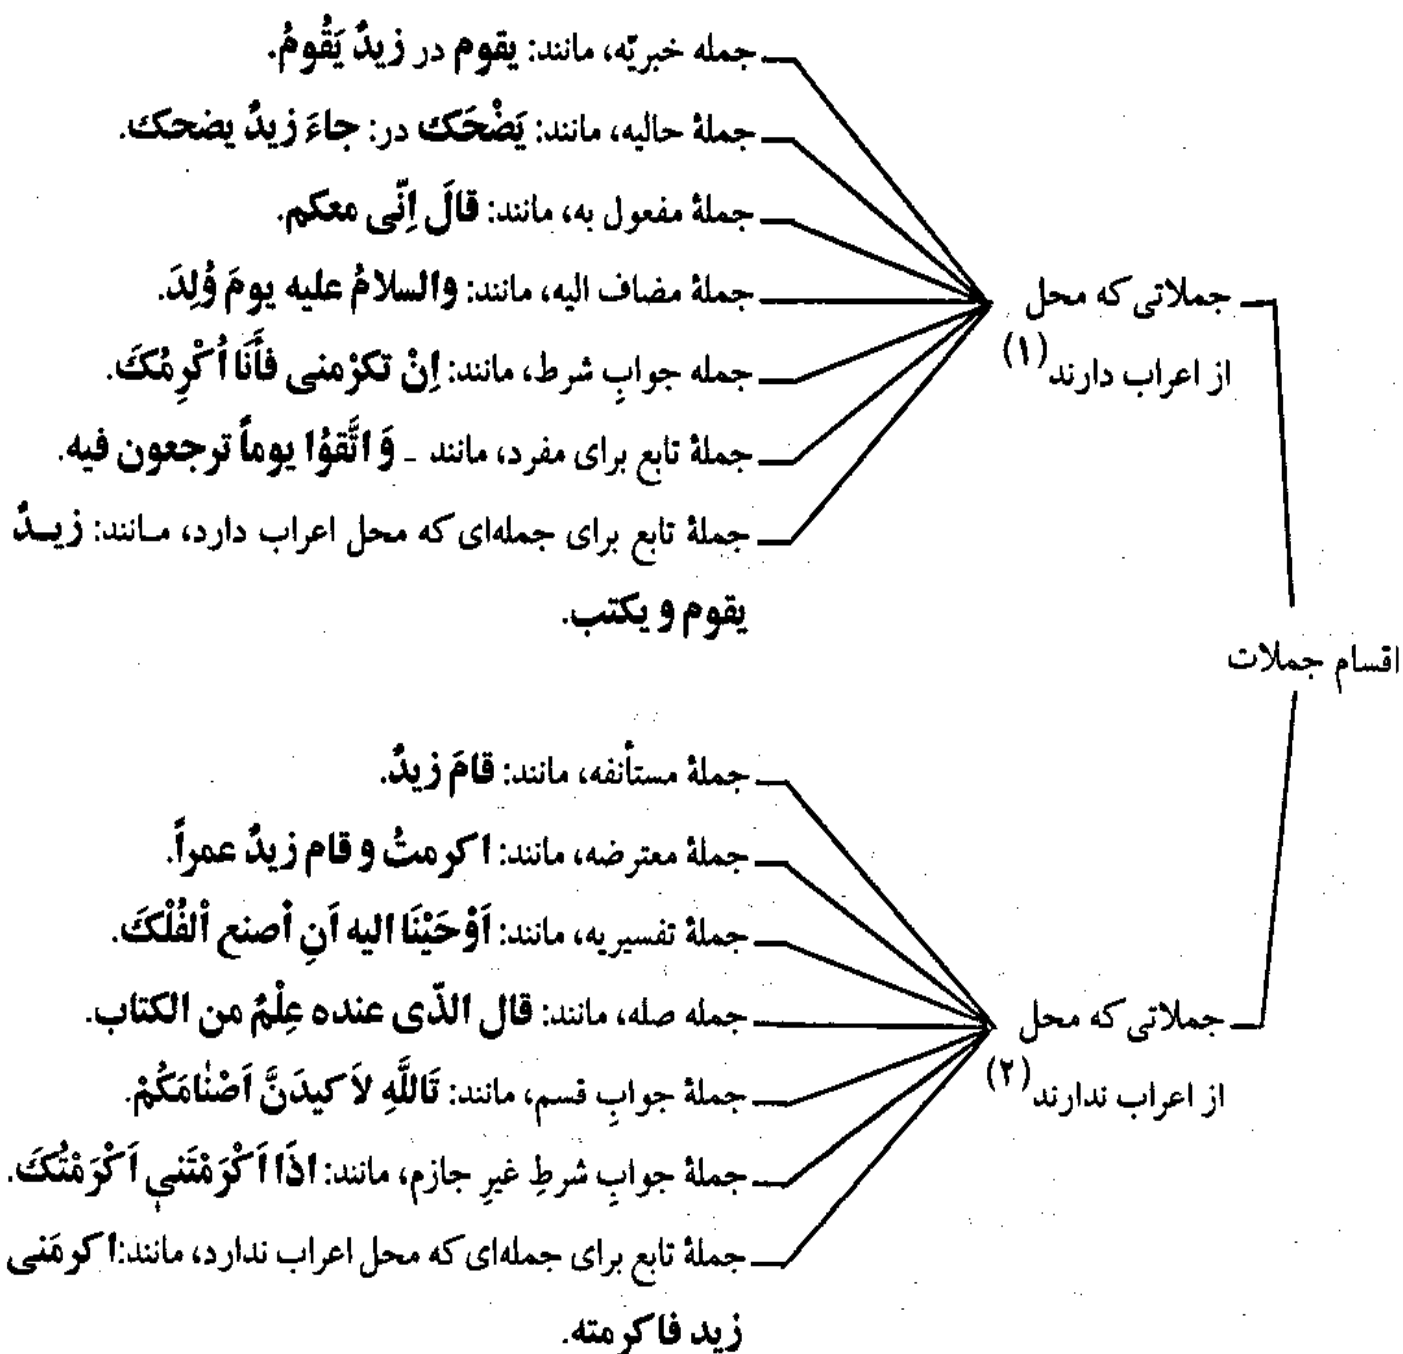 اقسام جملات
جملاتی که محل
از اعراب دارند(۱)
جمله خبریّه، مانند: یقوم در زیدٌ یَقُومُ.
جملهٔ حالیه، مانند: یَضْحَک در: جاءَ زیدٌ یضحک.
جملهٔ مفعول به، مانند: قالَ اِنّی معکم.
جملهٔ مضاف الیه، مانند: والسلامُ علیه یومَ وُلِدَ.
جمله جوابِ شرط، مانند: اِنْ تکرْمنی فأَنَا اُکْرِمُکَ.
جملهٔ تابع برای مفرد، مانند ـ وَ اتَّقوُا یوماً ترجعون فیه.
جملهٔ تابع برای جمله‌ای که محل اعراب دارد، مـانند: زیــدٌ
یقوم و یکتب.
جملاتی که محل
از اعراب ندارند(۲)
جملهٔ مستأنفه، مانند: قامَ زیدٌ.
جملهٔ معترضه، مانند: اکرمتُ و قام زیدٌ عمراً.
جملهٔ تفسیریه، مانند: اَوْحَیْنَا الیه اَنِ اْصنع اْلفُلْکَ.
جمله صله، مانند: قال الذّی عنده عِلْمٌ من الکتاب.
جملهٔ جوابِ قسم، مانند: تَاللَّهِ لاَکیدَنَّ اَصْنٰامَکُمْ.
جملهٔ جوابِ شرطِ غیرِ جازم، مانند: اذَا اَکْرَمْتَنیٖ اَکْرَمْتُکَ.
جملهٔ تابع برای جمله‌ای که محل اعراب ندارد، مانند: اکرمَنی
زید فاکرمته.